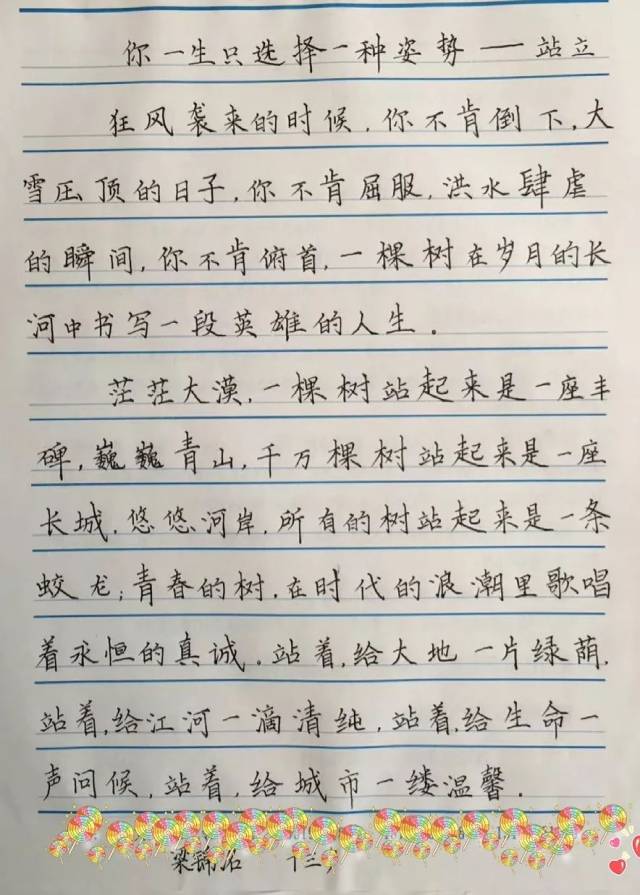 你一生只选择一种姿势——站立
狂风袭来的时候,你不肯倒下,大
雪压顶的日子,你不肯屈服,洪水肆虐
的瞬间,你不肯俯首,一棵树在岁月的长
河中书写一段英雄的人生。
茫茫大漠,一棵树站起来是一座丰
碑,巍巍青山,千万棵树站起来是一座
长城,悠悠河岸,所有的树站起来是一条
蛟龙;青春的树,在时代的浪潮里歌唱
着永恒的真诚。站着,给大地一片绿荫,
站着,给江河一滴清纯,站着,给生命一
声问候,站着,给城市一缕温馨。
梁锦